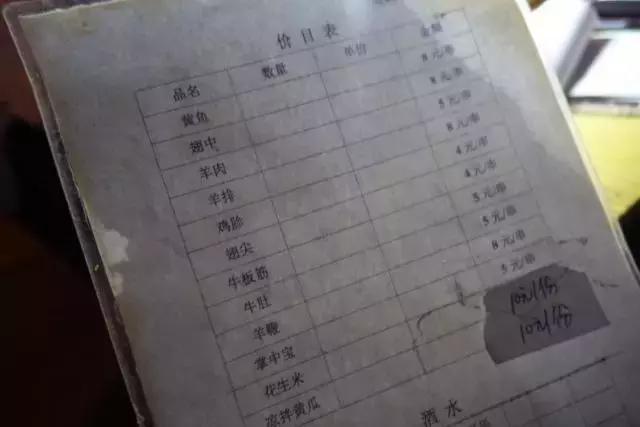 价目表
品名 数量 单价 金额
黄鱼 8元/串
翅中 8元/串
羊肉 5元/串
羊排 8元/串
鸡胗 4元/串
翅尖 4元/串
牛板筋 5元/串
牛肚 5元/串
羊鞭 8元/串
掌中宝 5元/串
花生米 10元/份
凉拌黄瓜 10元/份
酒水